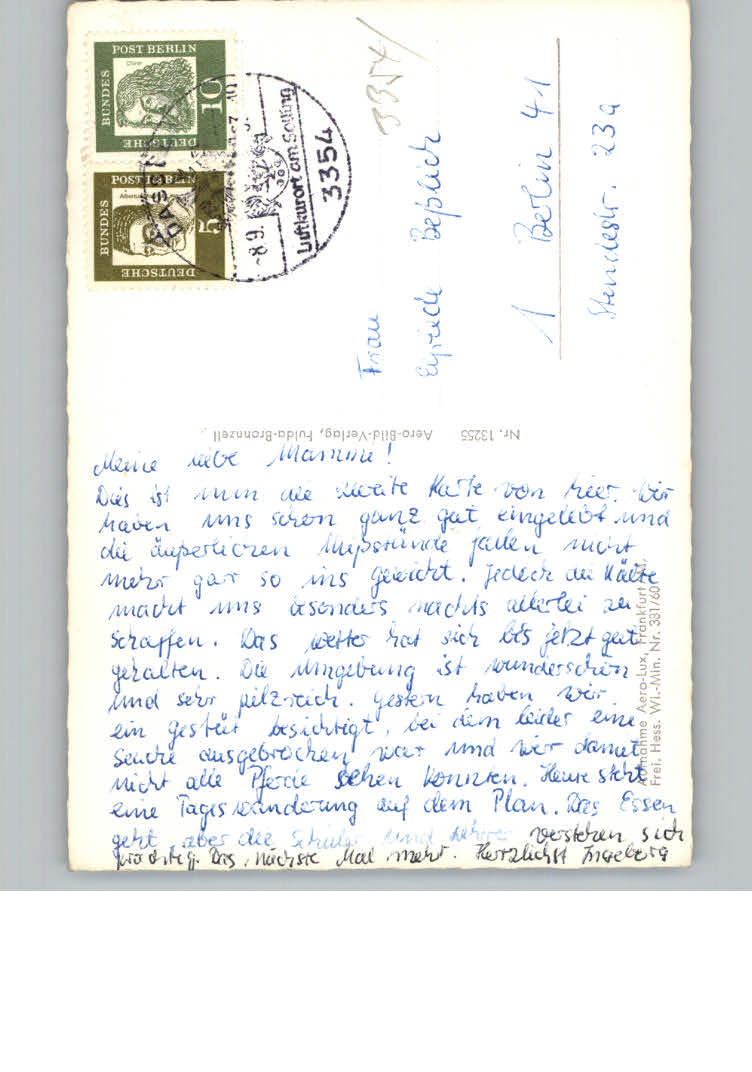 POST BERLIN
DEUTSCHE
BUNDES
10
POST BERLIN
DEUTSCHE
BUNDES
5
DASSEL
-8.9.
Luftkurort am Solling
3354
3354
Frau
1 Berlin 41
Stendestr. 23a
Nr. 13255 Aero-Bild-Verlag, Fulda-Bronnzell
Aufnahme Aero-Lux, Frankfurt
Frei. Hess. Wi.-Min. Nr. 381/60
Meine liebe Mammi!
Dies ist nun die zweite Karte von hier. Wir
haben uns schon ganz gut eingelebt und
die äußerlichen Mißstände fallen nicht
mehr gar so ins Gewicht. Jedoch die Kälte
macht uns besonders nachts allerlei zu
schaffen. Das Wetter hat sich bis jetzt gut
gehalten. Die Umgebung ist wunderschön
und sehr pilzreich. Gestern haben wir
ein Gestüt besichtigt, bei dem leider eine
Seuche ausgebrochen war und wir damit
nicht alle Pferde sehen konnten. Heute steht
eine Tageswanderung auf dem Plan. Das Essen
geht, aber die Schüler und Lehrer verstehen sich
prächtig. Das nächste Mal mehr. Herzlichst Ingeborg